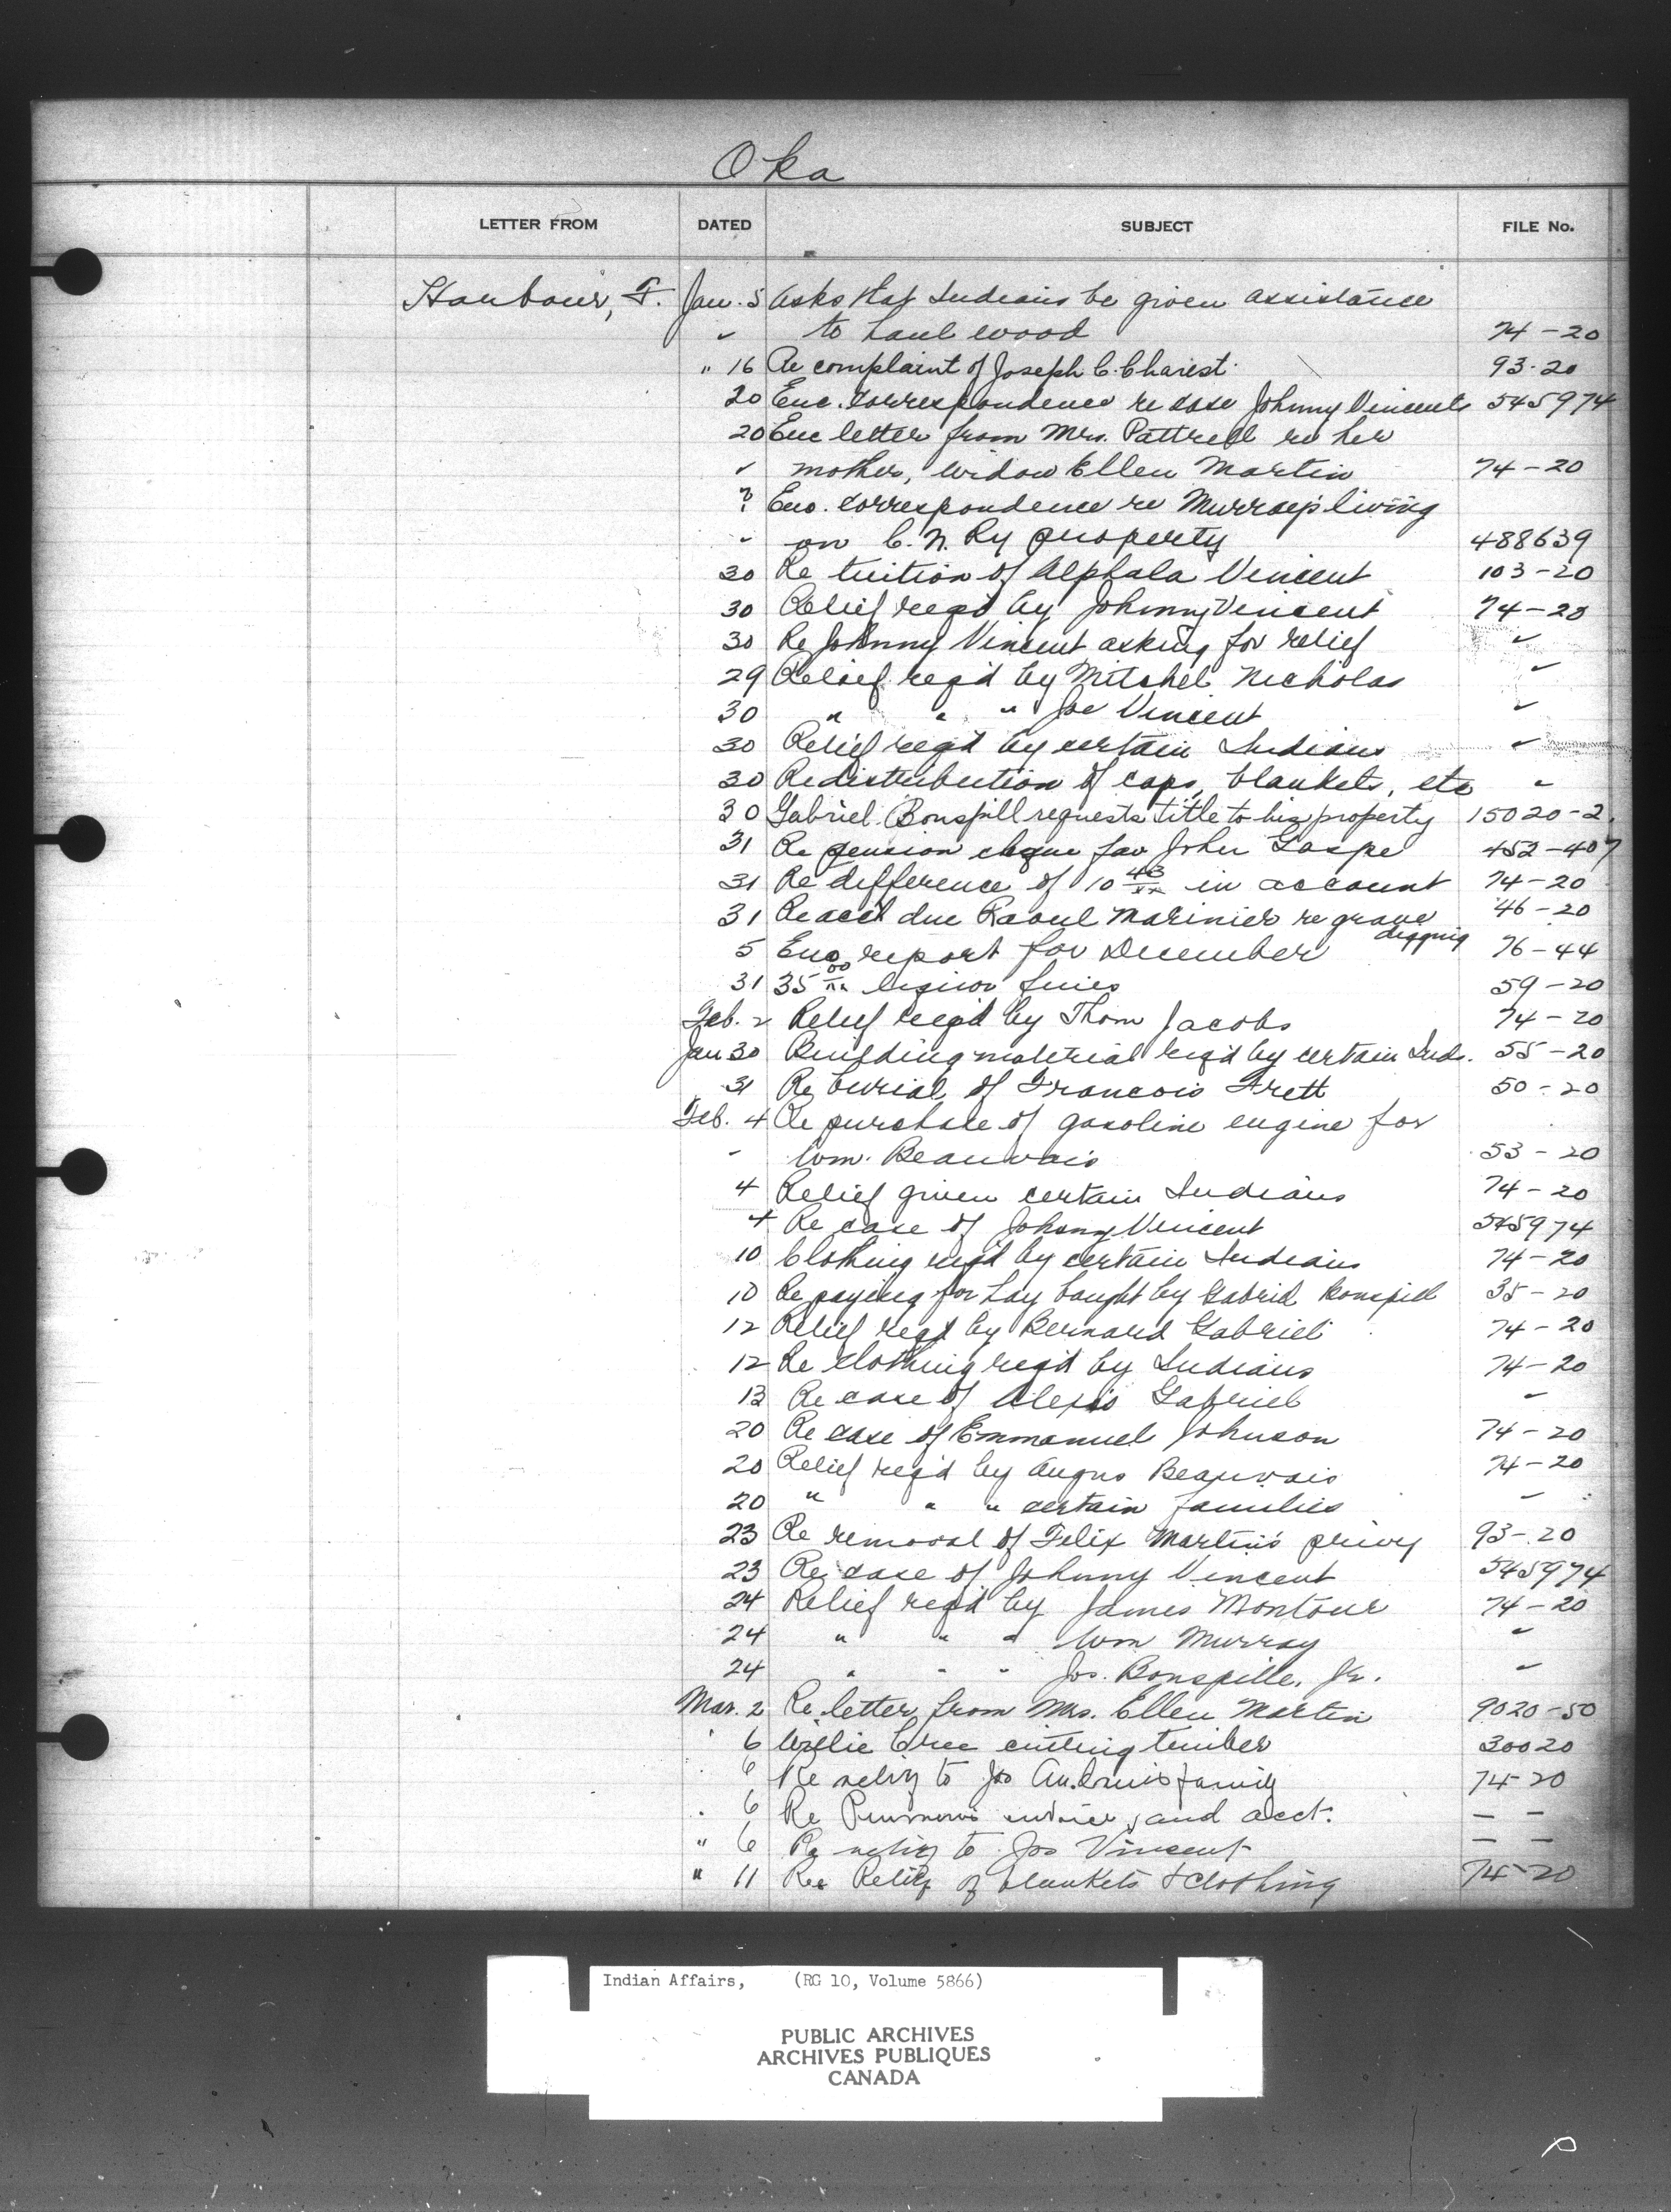 Oka
LETTER FROM DATED SUBJECT FILE No.
Harbour, F. Jan. 5 Asks that Indians be given assistance
" to haul wood 74-20
" 16 Re complaint of Joseph C. Charest 93-20
20 Enc. correspondence re case Johnny Vincents 545974
20 Enc letter from Mrs. Pattrell re her
" mother, widow Ellen Martin 74-20
? Enc. correspondence re Murray's living
" on C. N. Ry property 488639
30 Re tuition of Alphala Vincent 103-20
30 Relief req'd by Johnny Vincent 74-20
30 Re Johnny Vincent asking for relief "
29 Relief req'd by Mitchel Nicholas "
30 " " " Joe Vincent "
30 Relief req'd by certain Indians "
30 Re distribution of caps, blankets, etc "
30 Gabriel Bonspill requests title to his property 15020-2
31 Re pension cheque fav John Gaspe 452-407
31 Re difference of 10 43/xx in account 74-20
31 Re acct due Raoul Marinier re grave digging 46-20
5 Enc report for December 76-44
31 35 00/xx liquor fines 59-20
Feb. 2 Relief req'd by Thom Jacobs 74-20
Jan 30 Building material req'd by certain Inds. 55-20
31 Re burial of Francois Frett 50-20
Feb. 4 Re purchase of gasoline engine for
" Wm. Beauvais 53-20
4 Relief given certain Indians 74-20
4 Re case of Johnny Vincent 545974
10 Clothing req'd by certain Indians 74-20
10 Re paying for hay bought by Gabriel Bonspill 35-20
12 Relief reqd by Bernard Gabriel 74-20
12 Re clothing req'd by Indians 74-20
13 Re case of Alexis Gabriel "
20 Re case of Emmanuel Johnson 74-20
20 Relief req'd by Angus Beauvais 74-20
20 " " " certain families "
23 Re removal of Felix Martin's privy 93-20
23 Re case of Johnny Vincent 545974
24 Relief req'd by James Montour 74-20
24 " " " Wm Murray "
24 " " " Jos. Bonspille, Jr. "
Mar. 2 Re letter from Mrs. Ellen Martin 9020-50
" 6 Willie Cree cutting timber 30020
" 6 Re relief to Jos family 74-20
" 6 Re and acct. — —
" 6 Re relief to Jos Vincent — —
" 11 Re Relief of blankets & clothing 74-20
Indian Affairs, (RG 10, Volume 5866)
PUBLIC ARCHIVES
ARCHIVES PUBLIQUES
CANADA